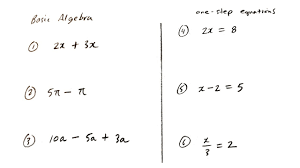 Basic Algebra
① 2x + 3x
② 5π - π
③ 10a - 5a + 3a
one-step equations
④ 2x = 8
⑤ x - 2 = 5
⑥ x/3 = 2